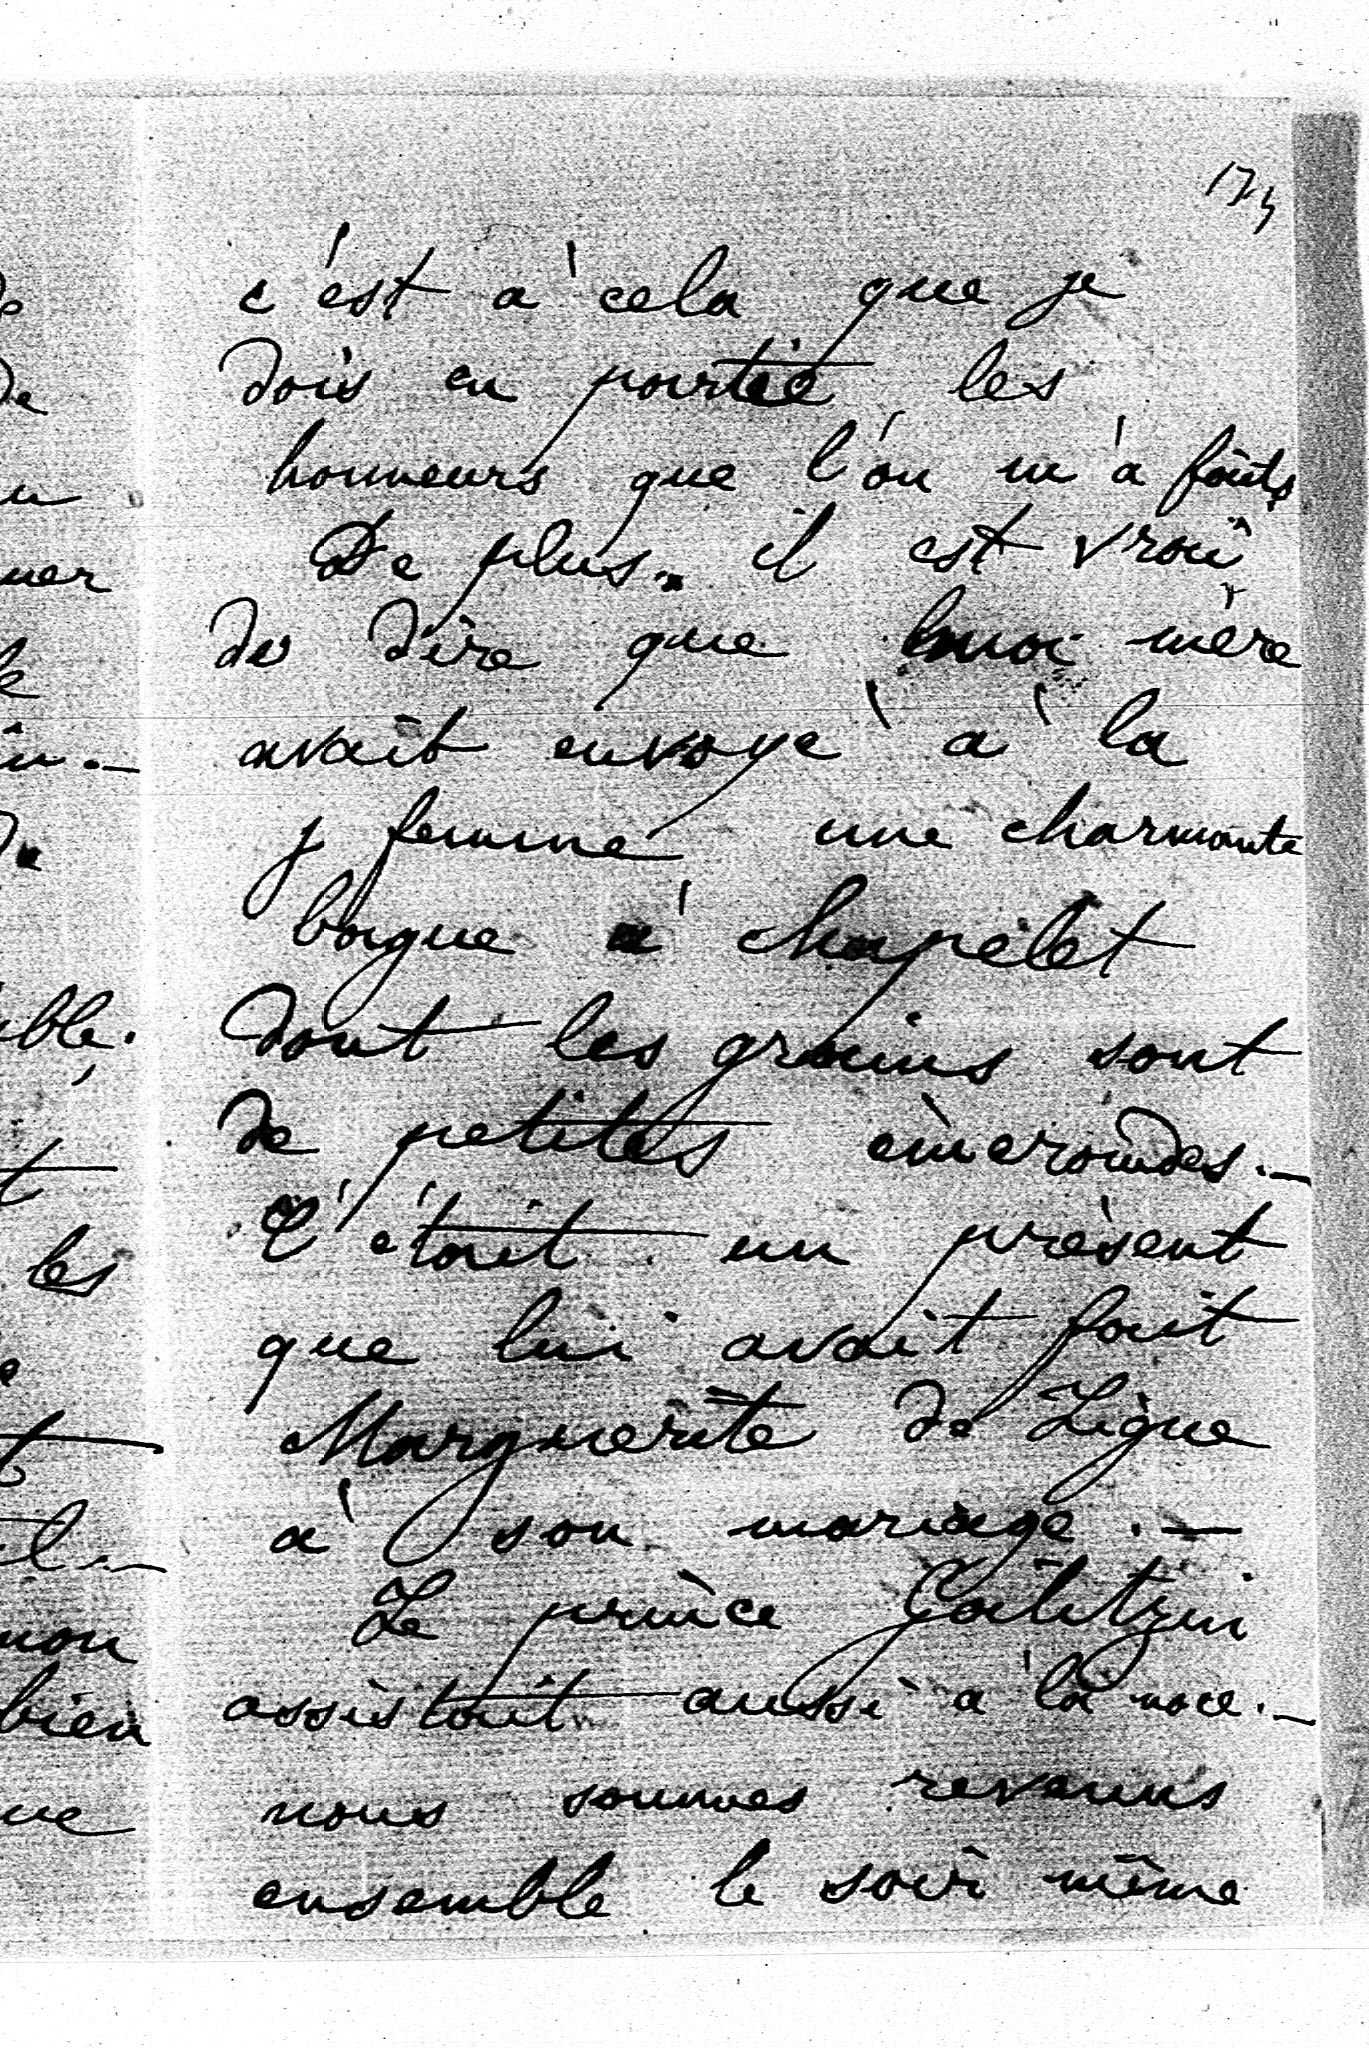 173
c'est à cela que je
dois en partie les
honneurs que l'on m'a faits
De plus. il est vrai
de dire que ma mère
avait envoyé à la
j femme une charmante
bague à chapelet
dont les grains sont
de petites émeraudes. —
C'était un présent
que lui avait fait
Marguerite de Ligne
à son mariage. —
Le prince Galitzin
assistait aussi à la noce. —
nous sommes revenus
ensemble le soir même